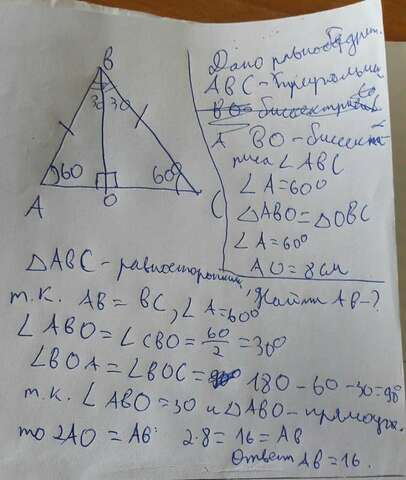 B
30 30
60
60°
A
O
C
Дано равнобедрен.
ABC - треугольник
BO - биссектриса
BO - биссект
риса ∠ ABC
∠A = 60°
△ABO = △OBC
∠A = 60°
AO = 8 см
Найти AB - ?
△ABC - равносторонний,
т.к. AB = BC, ∠A = 60°
∠ABO = ∠CBO = 60/2 = 30°
∠BOA = ∠BOC = 180 - 60 - 30 = 90°
т.к. ∠ABO = 30 и △ABO - прямоуг.
то 2AO = AB: 2·8 = 16 = AB
Ответ AB = 16.